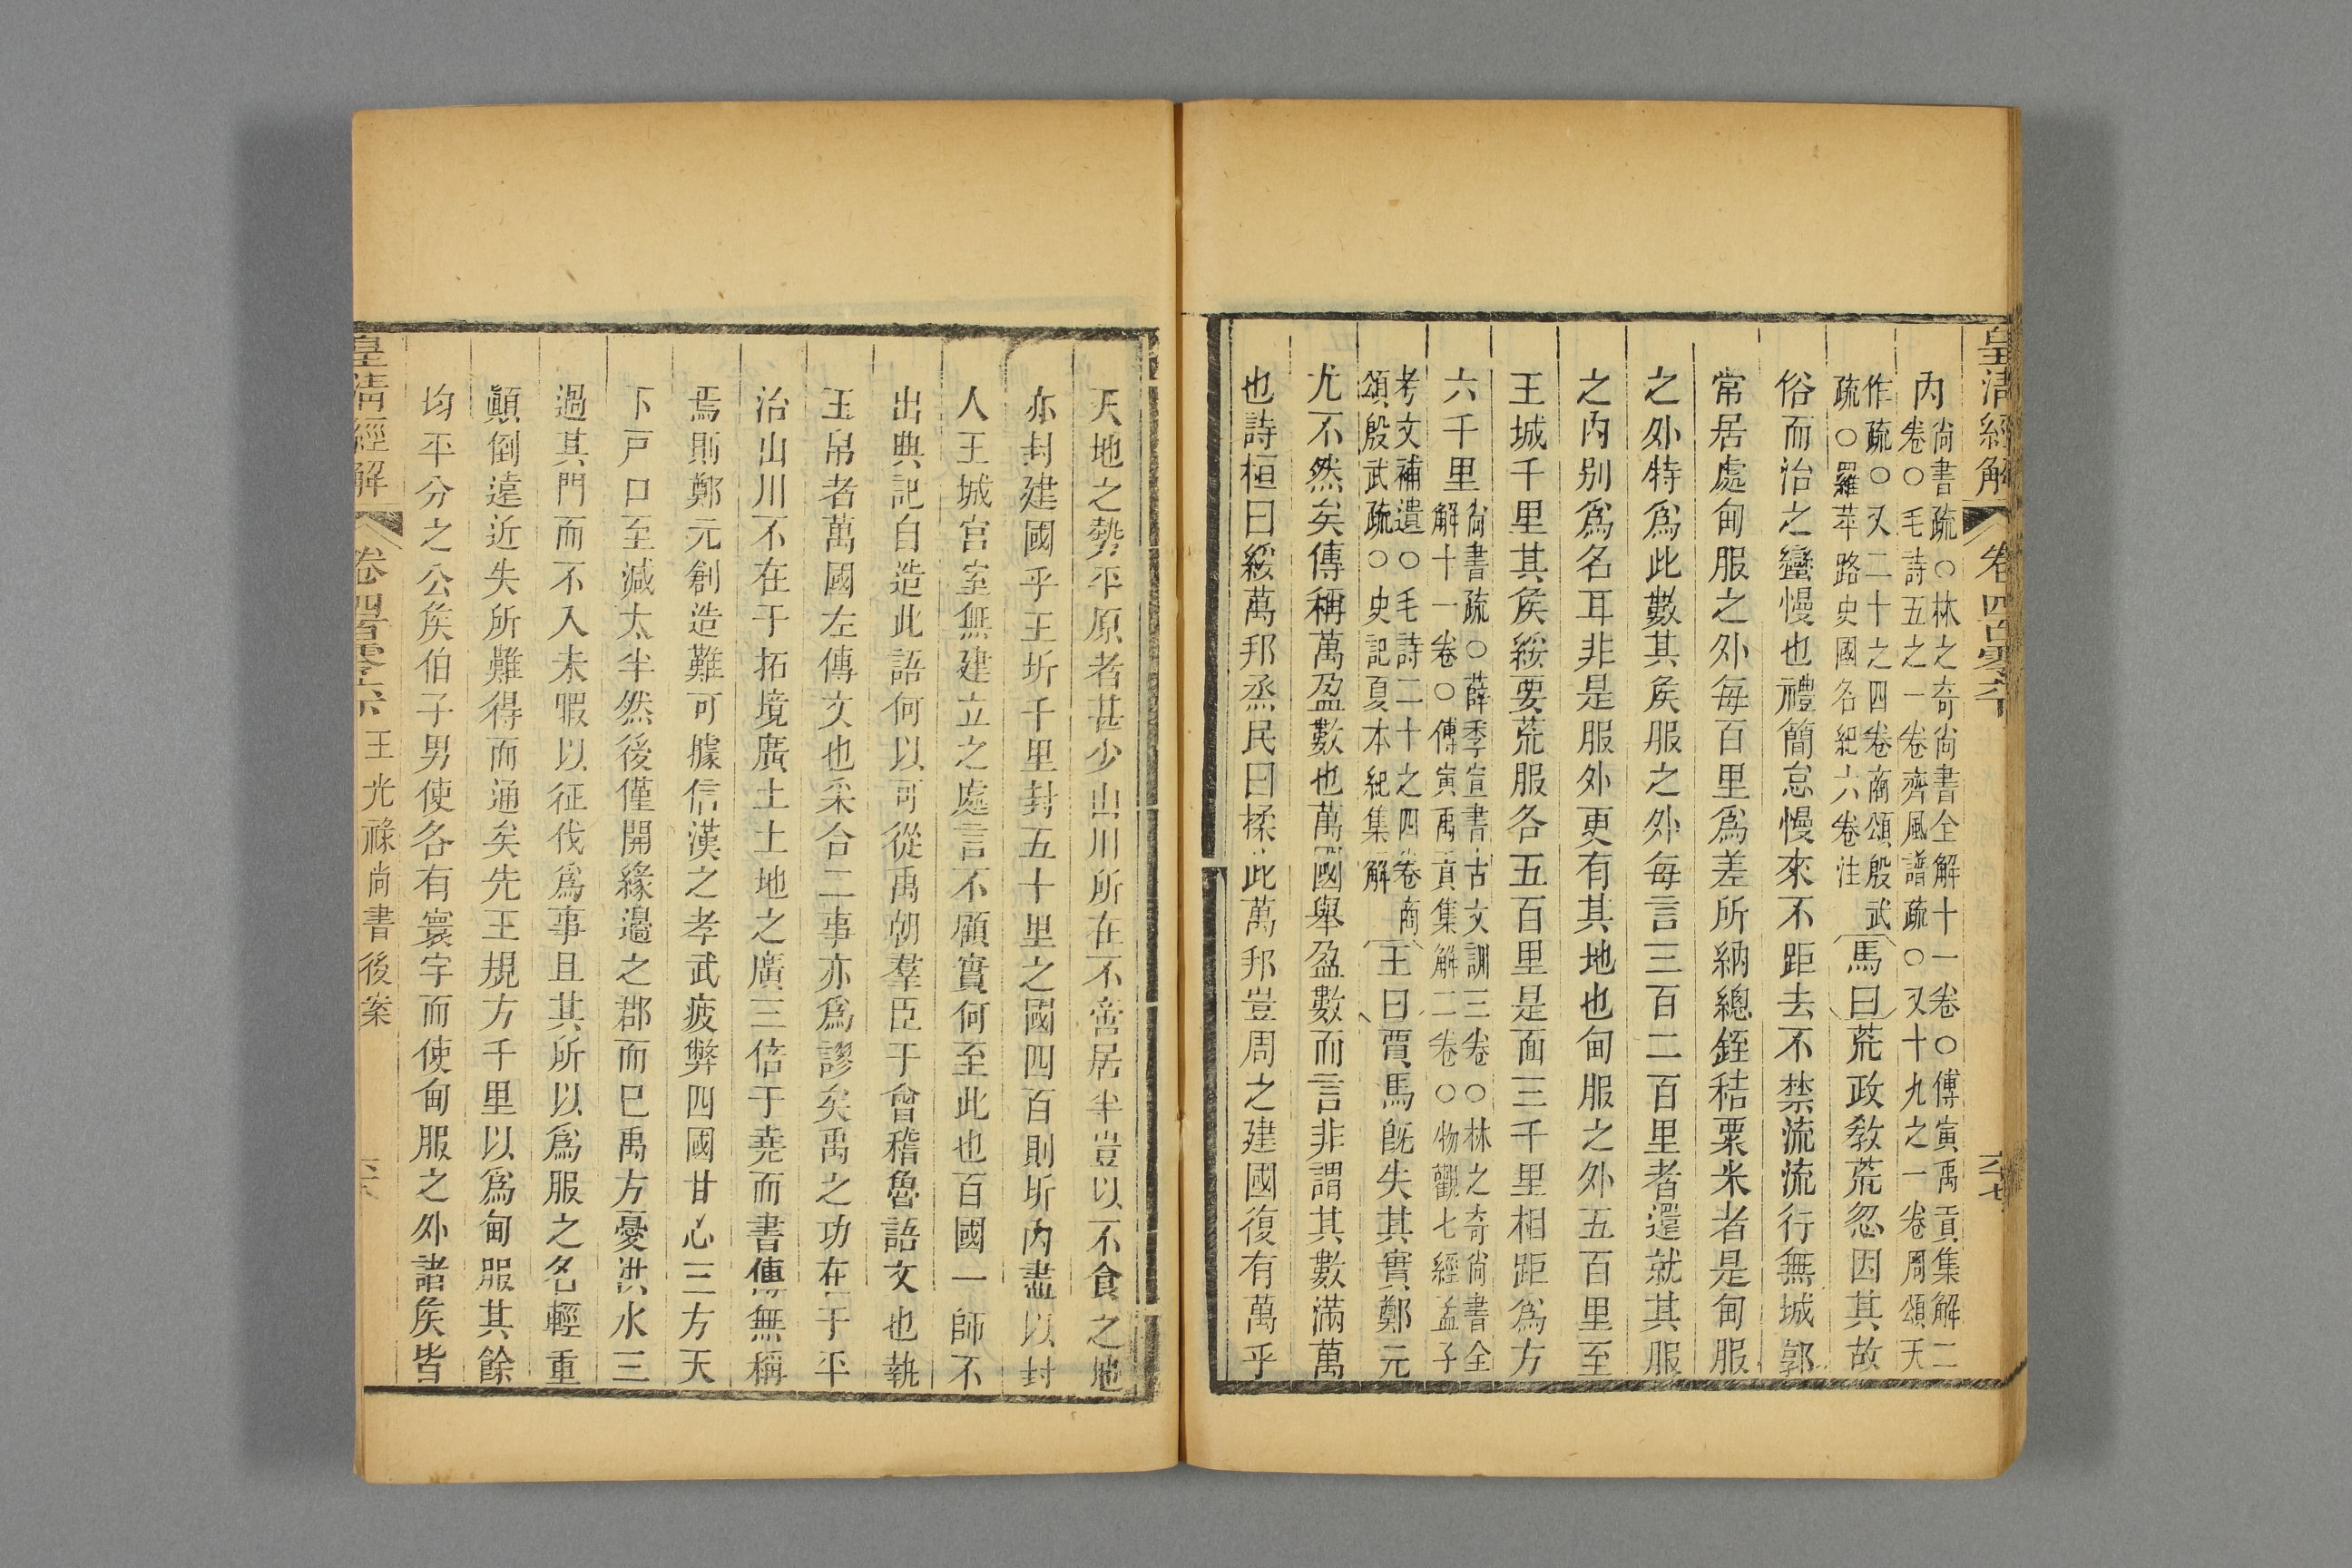 皇清經解
卷四百零六
六十七
內尚書疏○林之奇尚書全解十一卷○傅寅禹貢集解二
卷○毛詩五之一卷齊風譜疏○又十九之一卷周頌天
作疏○又二十之四卷商頌殷武
疏○羅苹路史國名紀六卷注馬曰荒政敎荒忽因其故
俗而治之蠻慢也禮簡怠慢來不距去不禁流流行無城郭
常居處甸服之外每百里爲差所納總銍秸粟米者是甸服
之外特爲此數其矦服之外每言三百二百里者還就其服
之內别爲名耳非是服外更有其地也甸服之外五百里至
王城千里其矦綏要荒服各五百里是面三千里相距爲方
六千里尚書疏○薛季宣書古文訓三卷○林之奇尚書全
解十一卷○傅寅禹貢集解二卷○物觀七經孟子
考文補遺○毛詩二十之四卷商
頌殷武疏○史記夏本紀集解王曰賈馬旣失其實鄭元
尤不然矣傳稱萬盈數也萬國舉盈數而言非謂其數滿萬
也詩桓曰綏萬邦烝民曰揉此萬邦豈周之建國復有萬乎
天地之勢平原者甚少山川所在不啻居半豈以不食之地
亦封建國乎王圻千里封五十里之國四百則圻內盡以封
人王城宮室無建立之處言不顧實何至此也百國一師不
出典記自造此語何以可從禹朝羣臣于會稽魯語文也執
玉帛者萬國左傳文也采合二事亦爲謬矣禹之功在于平
治山川不在于拓境廣土土地之廣三倍于堯而書傳無稱
焉則鄭元創造難可據信漢之孝武疲弊四國甘心三方天
下戸口至減太半然後僅開緣邉之郡而巳禹方憂洪水三
過其門而不入未暇以征伐爲事且其所以爲服之名輕重
顚倒遠近失所難得而通矣先王規方千里以爲甸服其餘
均平分之公矦伯子男使各有寰宇而使甸服之外諸矦皆
皇清經解
卷四百零六
王光祿尚書後案